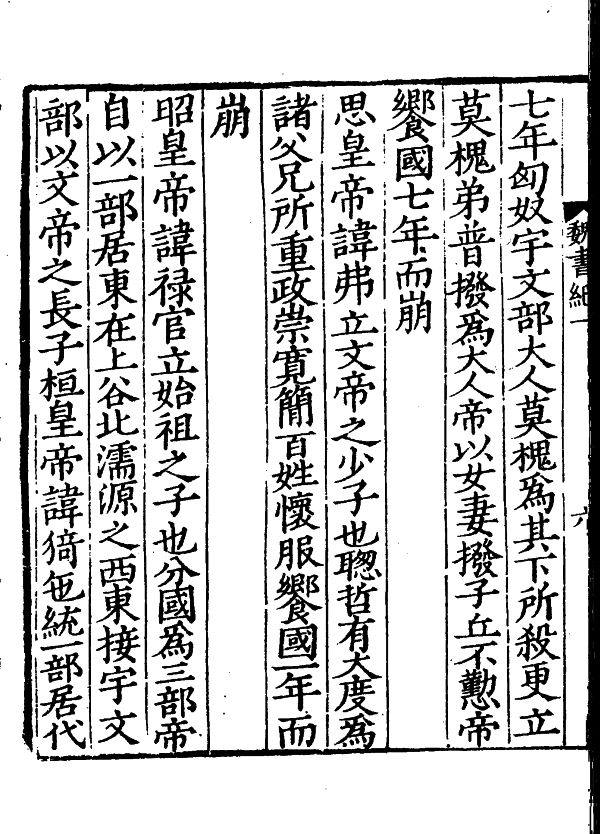 魏書紀一
六
七年匈奴宇文部大人莫槐爲其下所殺更立
莫槐弟普撥爲大人帝以女妻撥子丘不懃帝
饗國七年而崩
思皇帝諱弗立文帝之少子也聦哲有大度爲
諸父兄所重政崇寛簡百姓懷服饗國一年而
崩
昭皇帝諱禄官立始祖之子也分國爲三部帝
自以一部居東在上谷北濡源之西東接宇文
部以文帝之長子桓皇帝諱猗㐌統一部居代